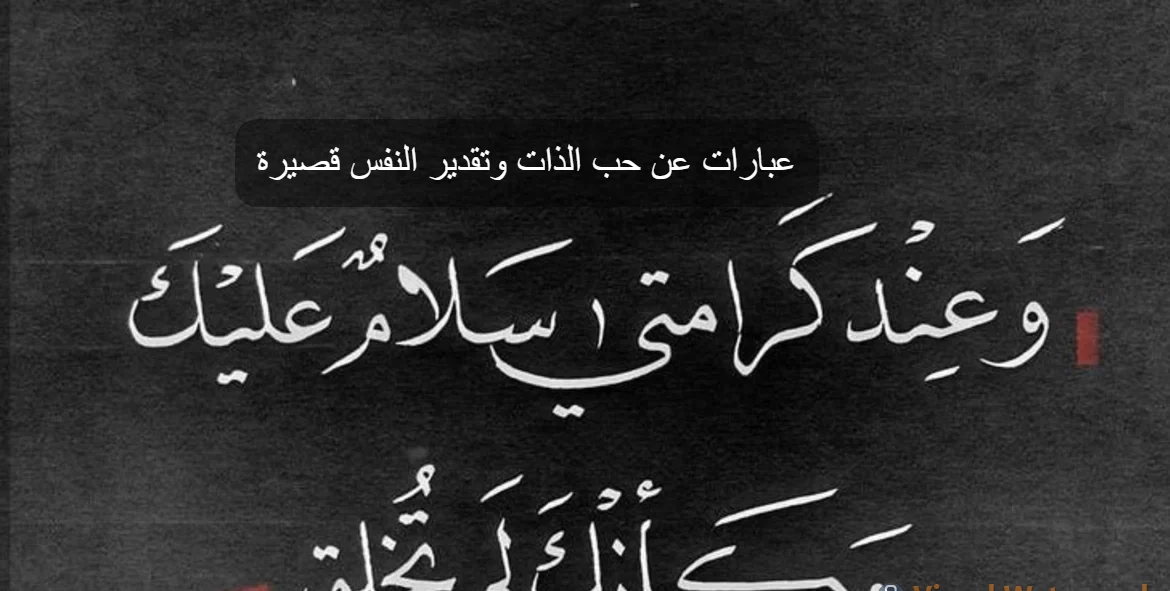 عبارات عن حب الذات وتقدير النفس قصيرة
وَعِنْد كَرامتي سَلامٌ عَليْكَ
وَكَأنْكَ لَم تُخلق